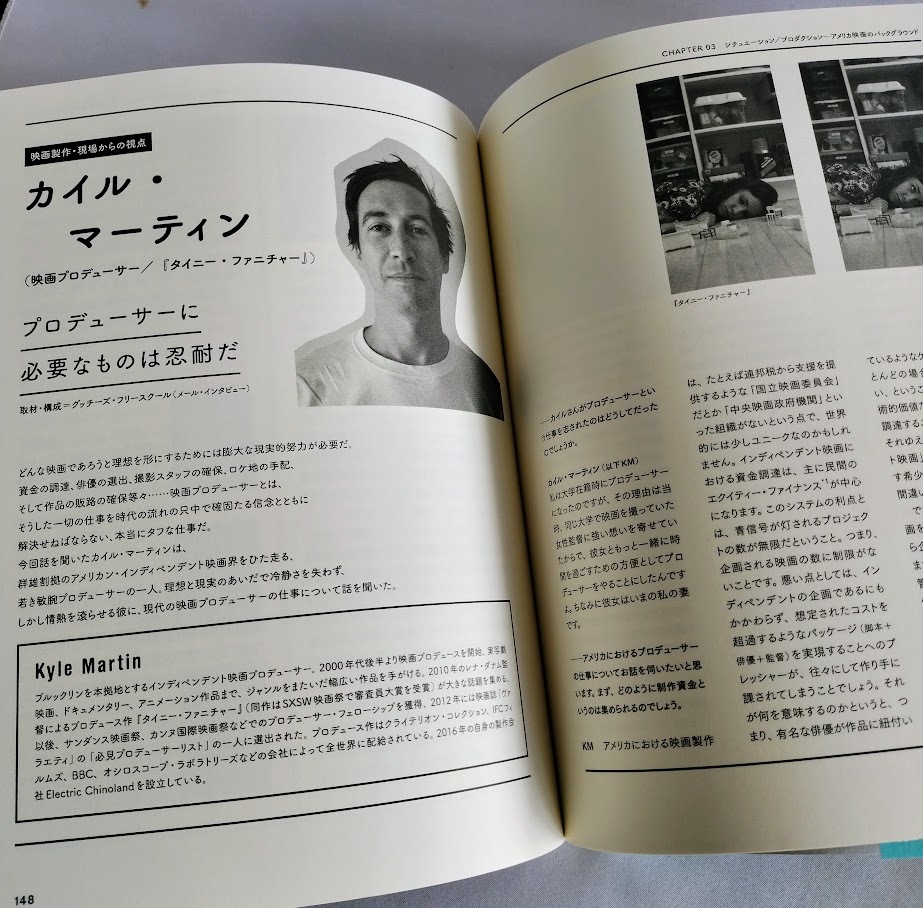 映画製作・現場からの視点
カイル・
マーティン
(映画プロデューサー/『タイニー・ファニチャー』)
プロデューサーに
必要なものは忍耐だ
取材・構成=グッチーズ・フリースクール(メール・インタビュー)
どんな映画であろうと理想を形にするためには膨大な現実的努力が必要だ。
資金の調達、俳優の選出、撮影スタッフの確保、ロケ地の手配、
そして作品の販路の確保等々……映画プロデューサーとは、
そうした一切の仕事を時代の流れの只中で確固たる信念とともに
解決せねばならない、本当にタフな仕事だ。
今回話を聞いたカイル・マーティンは、
群雄割拠のアメリカン・インディペンデント映画界をひた走る、
若き敏腕プロデューサーの一人。理想と現実のあいだで冷静さを失わず、
しかし情熱を滾らせる彼に、現代の映画プロデューサーの仕事について話を聞いた。
Kyle Martin
ブルックリンを本拠地とするインディペンデント映画プロデューサー。2000年代後半より映画プロデュースを開始、実写劇
映画、ドキュメンタリー、アニメーション作品まで、ジャンルをまたいだ幅広い作品を手がける。2010年のレナ・ダナム監
督によるプロデュース作『タイニー・ファニチャー』(同作はSXSW映画祭で審査員大賞を受賞)が大きな話題を集める。
以後、サンダンス映画祭、カンヌ国際映画祭などでのプロデューサー・フェローシップを獲得、2012年には映画誌『ヴァ
ラエティ』の「必見プロデューサーリスト」の一人に選出された。プロデュース作はクライテリオン・コレクション、IFCフィ
ルムズ、BBC、オシロスコープ・ラボラトリーズなどの会社によって全世界に配給されている。2016年の自身の製作会
社Electric Chinolandを設立している。
148
CHAPTER 03 シチュエーション/プロダクション―アメリカ映画のバックグラウンド
『タイニー・ファニチャー』
――カイルさんがプロデューサーとい
う仕事を志されたのはどうしてだった
のでしょうか。
カイル・マーティン(以下KM)
私は大学在籍時にプロデューサー
になったのですが、その理由は当
時、同じ大学で映画を撮っていた
女性監督に強い想いを寄せてい
たからで、彼女ともっと一緒に時
間を過ごすための方便としてプロ
デューサーをやることにしたんです
よ。ちなみに彼女はいまの私の妻
です。
――アメリカにおけるプロデューサー
の仕事についてお話を伺いたいと思
います。まず、どのように制作資金と
いうのは集められるのでしょう。
KM アメリカにおける映画製作
は、たとえば連邦税から支援を提
供するような「国立映画委員会」
だとか「中央映画政府機関」とい
った組織がないという点で、世界
的には少しユニークなのかもしれ
ません。インディペンデント映画に
おける資金調達は、主に民間の
エクイティー・ファイナンス*1が中心
になります。このシステムの利点と
は、青信号が灯されるプロジェク
トの数が無限だということ。つまり、
企画される映画の数に制限がな
いことです。悪い点としては、イン
ディペンデントの企画であるにも
かかわらず、想定されたコストを
超過するようなパッケージ(脚本+
俳優+監督)を実現することへのプ
レッシャーが、往々にして作り手に
課されてしまうことでしょう。それ
が何を意味するのかというと、つ
まり、有名な俳優が作品に紐付い
ているような
とんどの場合
い、というこ
術的価値
調達するこ
それゆえ
ト映画」
す希少
間違い